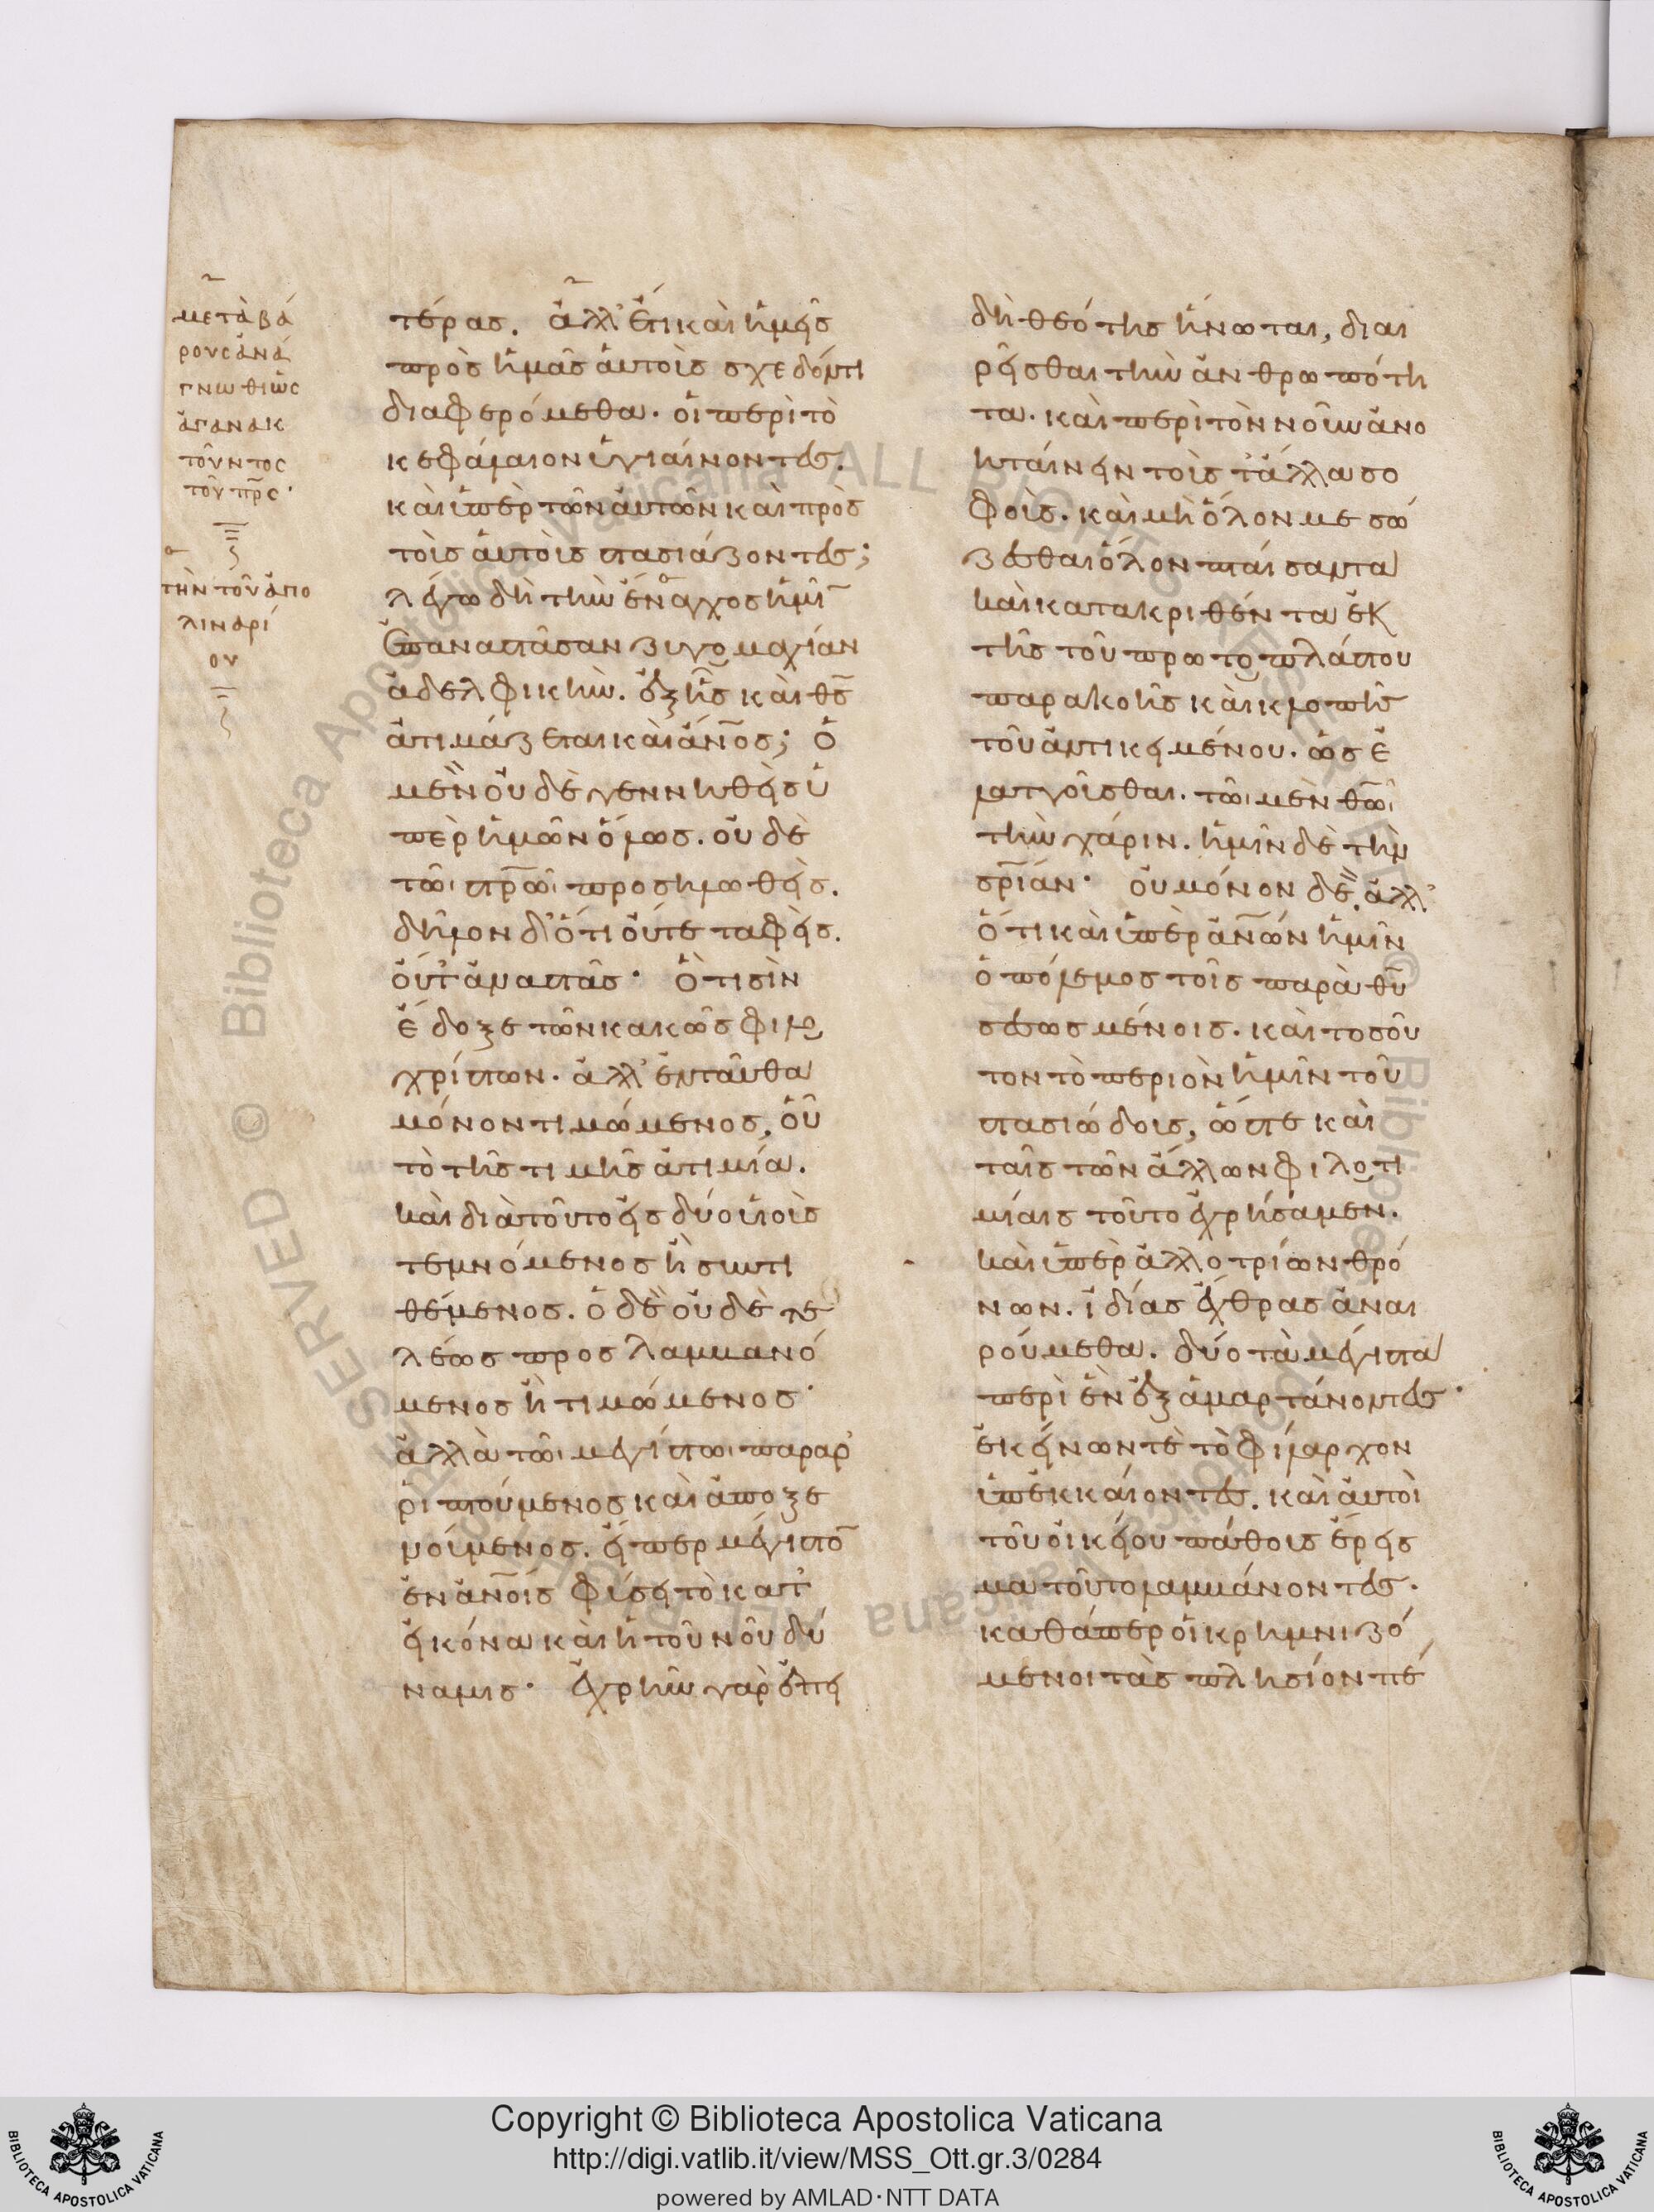 μετὰ βά
ρους ἀνά
γνωθι ὡς
ἀγανακ
τοῦντος
τοῦ πρς·
τὴν τοῦ ἀπο
λιναρί
ου
τέρας. ἀλλ' ἔτι καὶ ἡμεῖς
πρὸς ἡμᾶς αὐτοὺς σχεδόν τι
διαφερόμεθα. οἱ περὶ τὸ
κεφάλαιον ὑγιαίνοντες.
καὶ ὑπὲρ τῶν αὐτῶν καὶ πρὸς
τοὺς αὐτοὺς στασιάζοντες;
λέγω δὴ τὴν ἔναγχος ἡμῖ
ἐπαναστᾶσαν ζυγομαχίαν
ἀδελφικὴν. ἐξ ἧς καὶ θς
ἀτιμάζεται καὶ ἄνος; ὁ
μὲν οὐδὲ γεννηθεὶς ὑ
πὲρ ἡμῶν ὅλως. οὐδὲ
τῶι στρῶι προσηλωθείς.
δῆλον δ' ὅτι οὔτε ταφείς.
οὔτ' ἀναστάς· ὅ τισὶν
ἔδοξε τῶν κακῶς φιλο
χρίστων. ἀλλ' ἐνταῦθα
μόνον τιμώμενος, οὗ
τὸ τῆς τιμῆς ἀτιμία.
καὶ διὰ τοῦτο εἰς δύο υἱοὺς
τεμνόμενος ἢ συντι
θέμενος. ὁ δὲ οὐδὲ τε
λέως προσλαμβανό
μενος ἢ τιμώμενος·
ἀλλὰ τῶι μεγίστωι παραρ
ριπτούμενος καὶ ἀποξε
νούμενος. εἴπερ μέγιστο
ἐν ἀνοις φύσει τὸ κατ'
εἰκόνα καὶ ἡ τοῦ νοῦ δύ
ναμις· ἐχρῆν γὰρ ἐπεὶ
δὴ θεότης ἥνωται, διαι
ρεῖσθαι τὴν ἀνθρωπότη
τα. καὶ περὶ τὸν νοῦν ἀνο
ηταίνειν τοὺς τἄλλα σο
φούς. καὶ μὴ ὅλον με σώ
ζεσθαι ὅλον πταίσαντα
καὶ κατακριθέντα ἐκ
τῆς τοῦ πρωτοπλάστου
παρακοῆς καὶ κλοπῆς
τοῦ ἀντικειμένου. ὡς ἐ
λαττοῦσθαι. τῶι μὲν θῶι
τὴν χάριν. ἡμῖν δὲ τὴν
σριάν· οὐ μόνον δὲ, ἀλλ'
ὅτι καὶ ὑπὲρ ἀνων ἡμῖν
ὁ πόλεμος τοῖς παρὰ θυ
σεσωσμένοις. καὶ τοσοῦ
τον τὸ περιὸν ἡμῖν τοῦ
στασιώδους, ὥστε καὶ
ταῖς τῶν ἄλλων φιλοτι
μίαις τοῦτο ἐχρήσαμεν.
καὶ ὑπὲρ ἀλλοτρίων θρό
νων. ἰδίας ἔχθρας ἀναι
ρούμεθα. δύο τὰ μέγιστα
περὶ ἓν ἐξαμαρτάνοντες·
ἐκείνων τὲ τὸ φίλαρχον
ὑπεκκαίοντες. καὶ αὐτοὶ
τοῦ οἰκείου πάθους ἔρεις
μα τοῦτο λαμβάνοντες.
καθάπερ οἱ κρημνιζό
μενοι τὰς πλησίον πέ
Copyright © Biblioteca Apostolica Vaticana
http://digi.vatlib.it/view/MSS_Ott.gr.3/0284
powered by AMLAD·NTT DATA